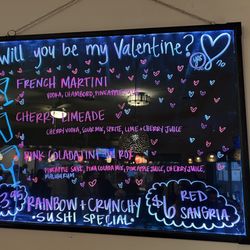 will you be my Valentine?
FRENCH MARTINI
VODKA, CHAMBORD, PINEAPPLE
CHERRY LIMEADE
CHERRY VODKA, SOUR MIX, SPRITE, LIME + CHERRY JUICE
PINK COLADATINI
PINEAPPLE JUICE, CHERRY JUICE,
MALIBU RUM
RAINBOW + CRUNCHY
SUSHI SPECIAL
$6 RED
SANGRIA